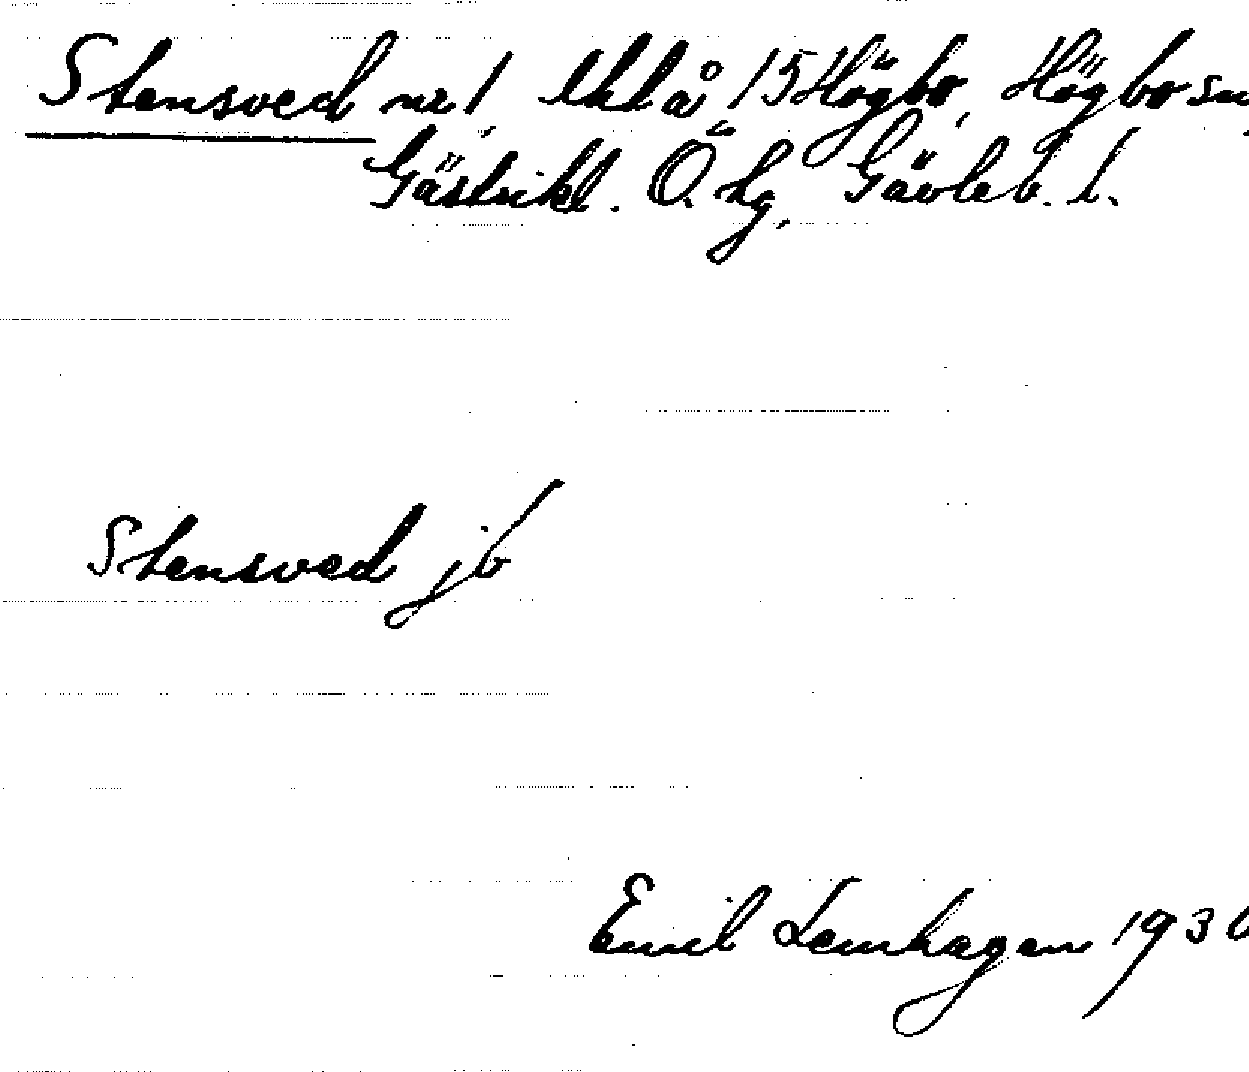 Stensved nr 1, Ekl å 15 Högbo, Högbo sn,
Gästrikl. Ö. hg, Gävleb. l.
Stensved jb
Emil Lenhagen 1930